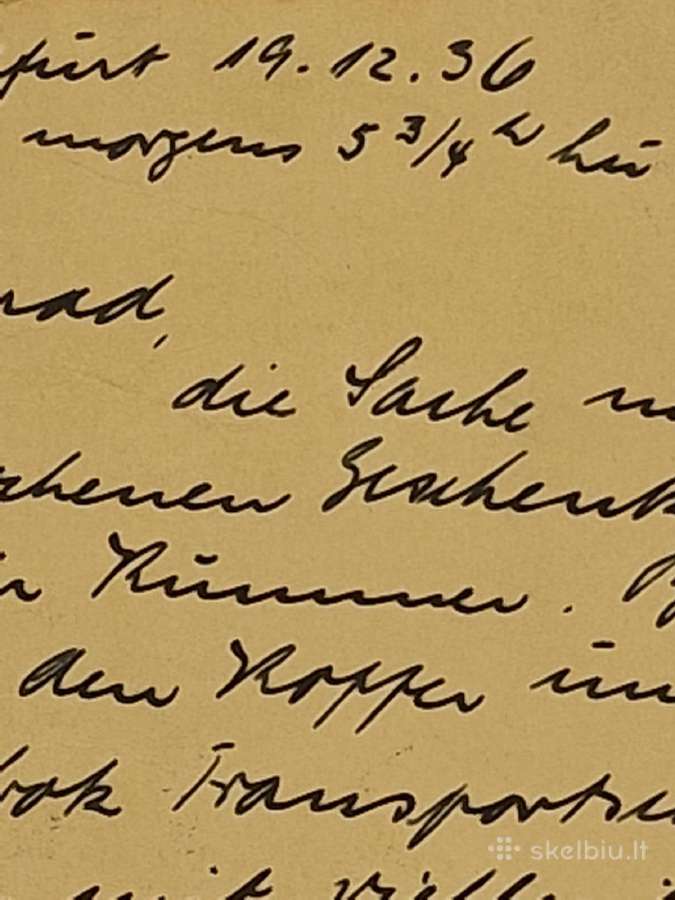 furt 19.12.36
morgens 5 3/4 h
rad,
die Sache
chenen Geschenk
Kummer.
den Koffer
Transports
mit
skelbiu.lt